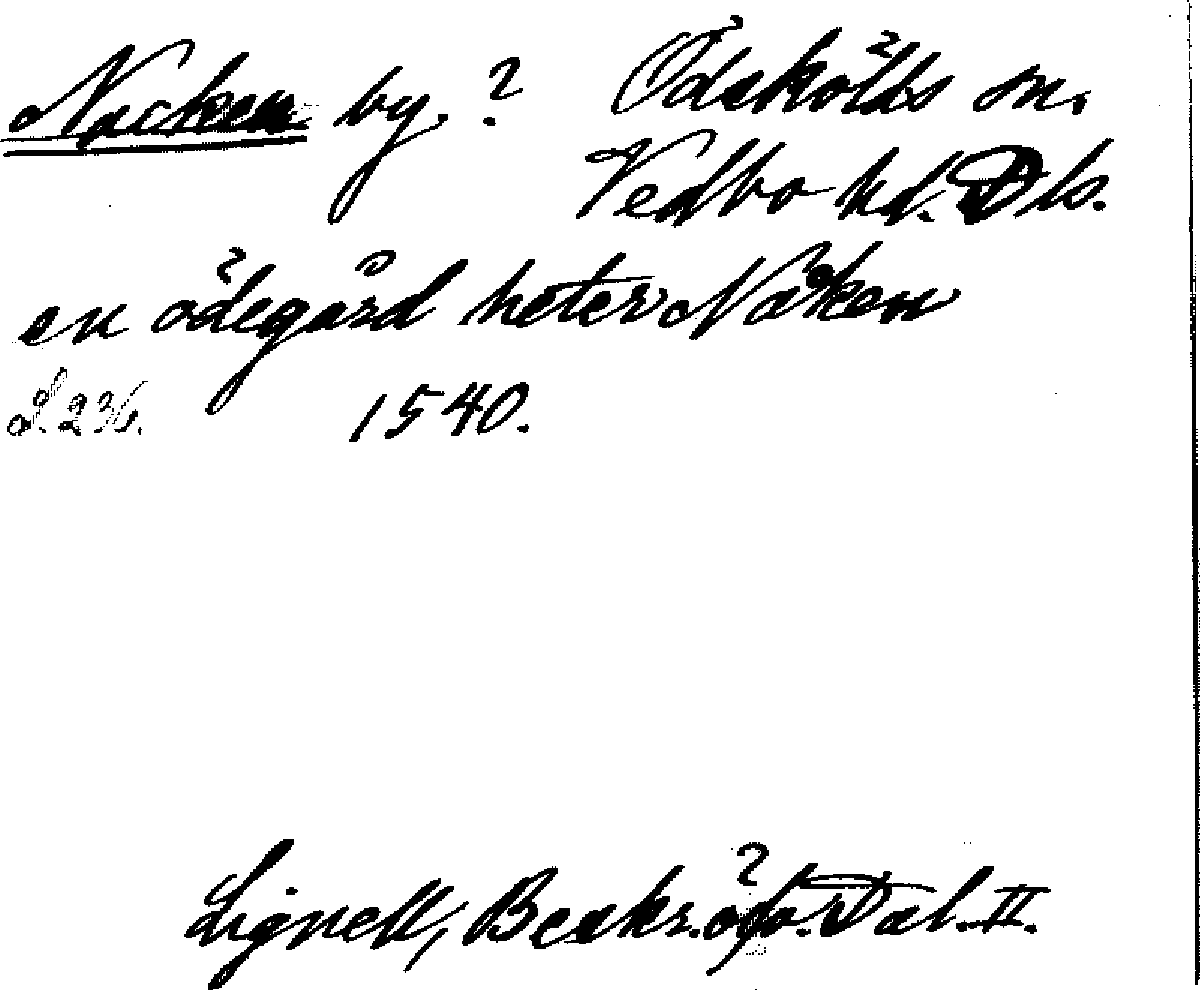 Nacken by.? Ödskölds sn.
Vedbo hd. Dls.
en ödegård heter Naken
S. 236. 1540.
Lignell, Beskr. öfv. Dal. II.